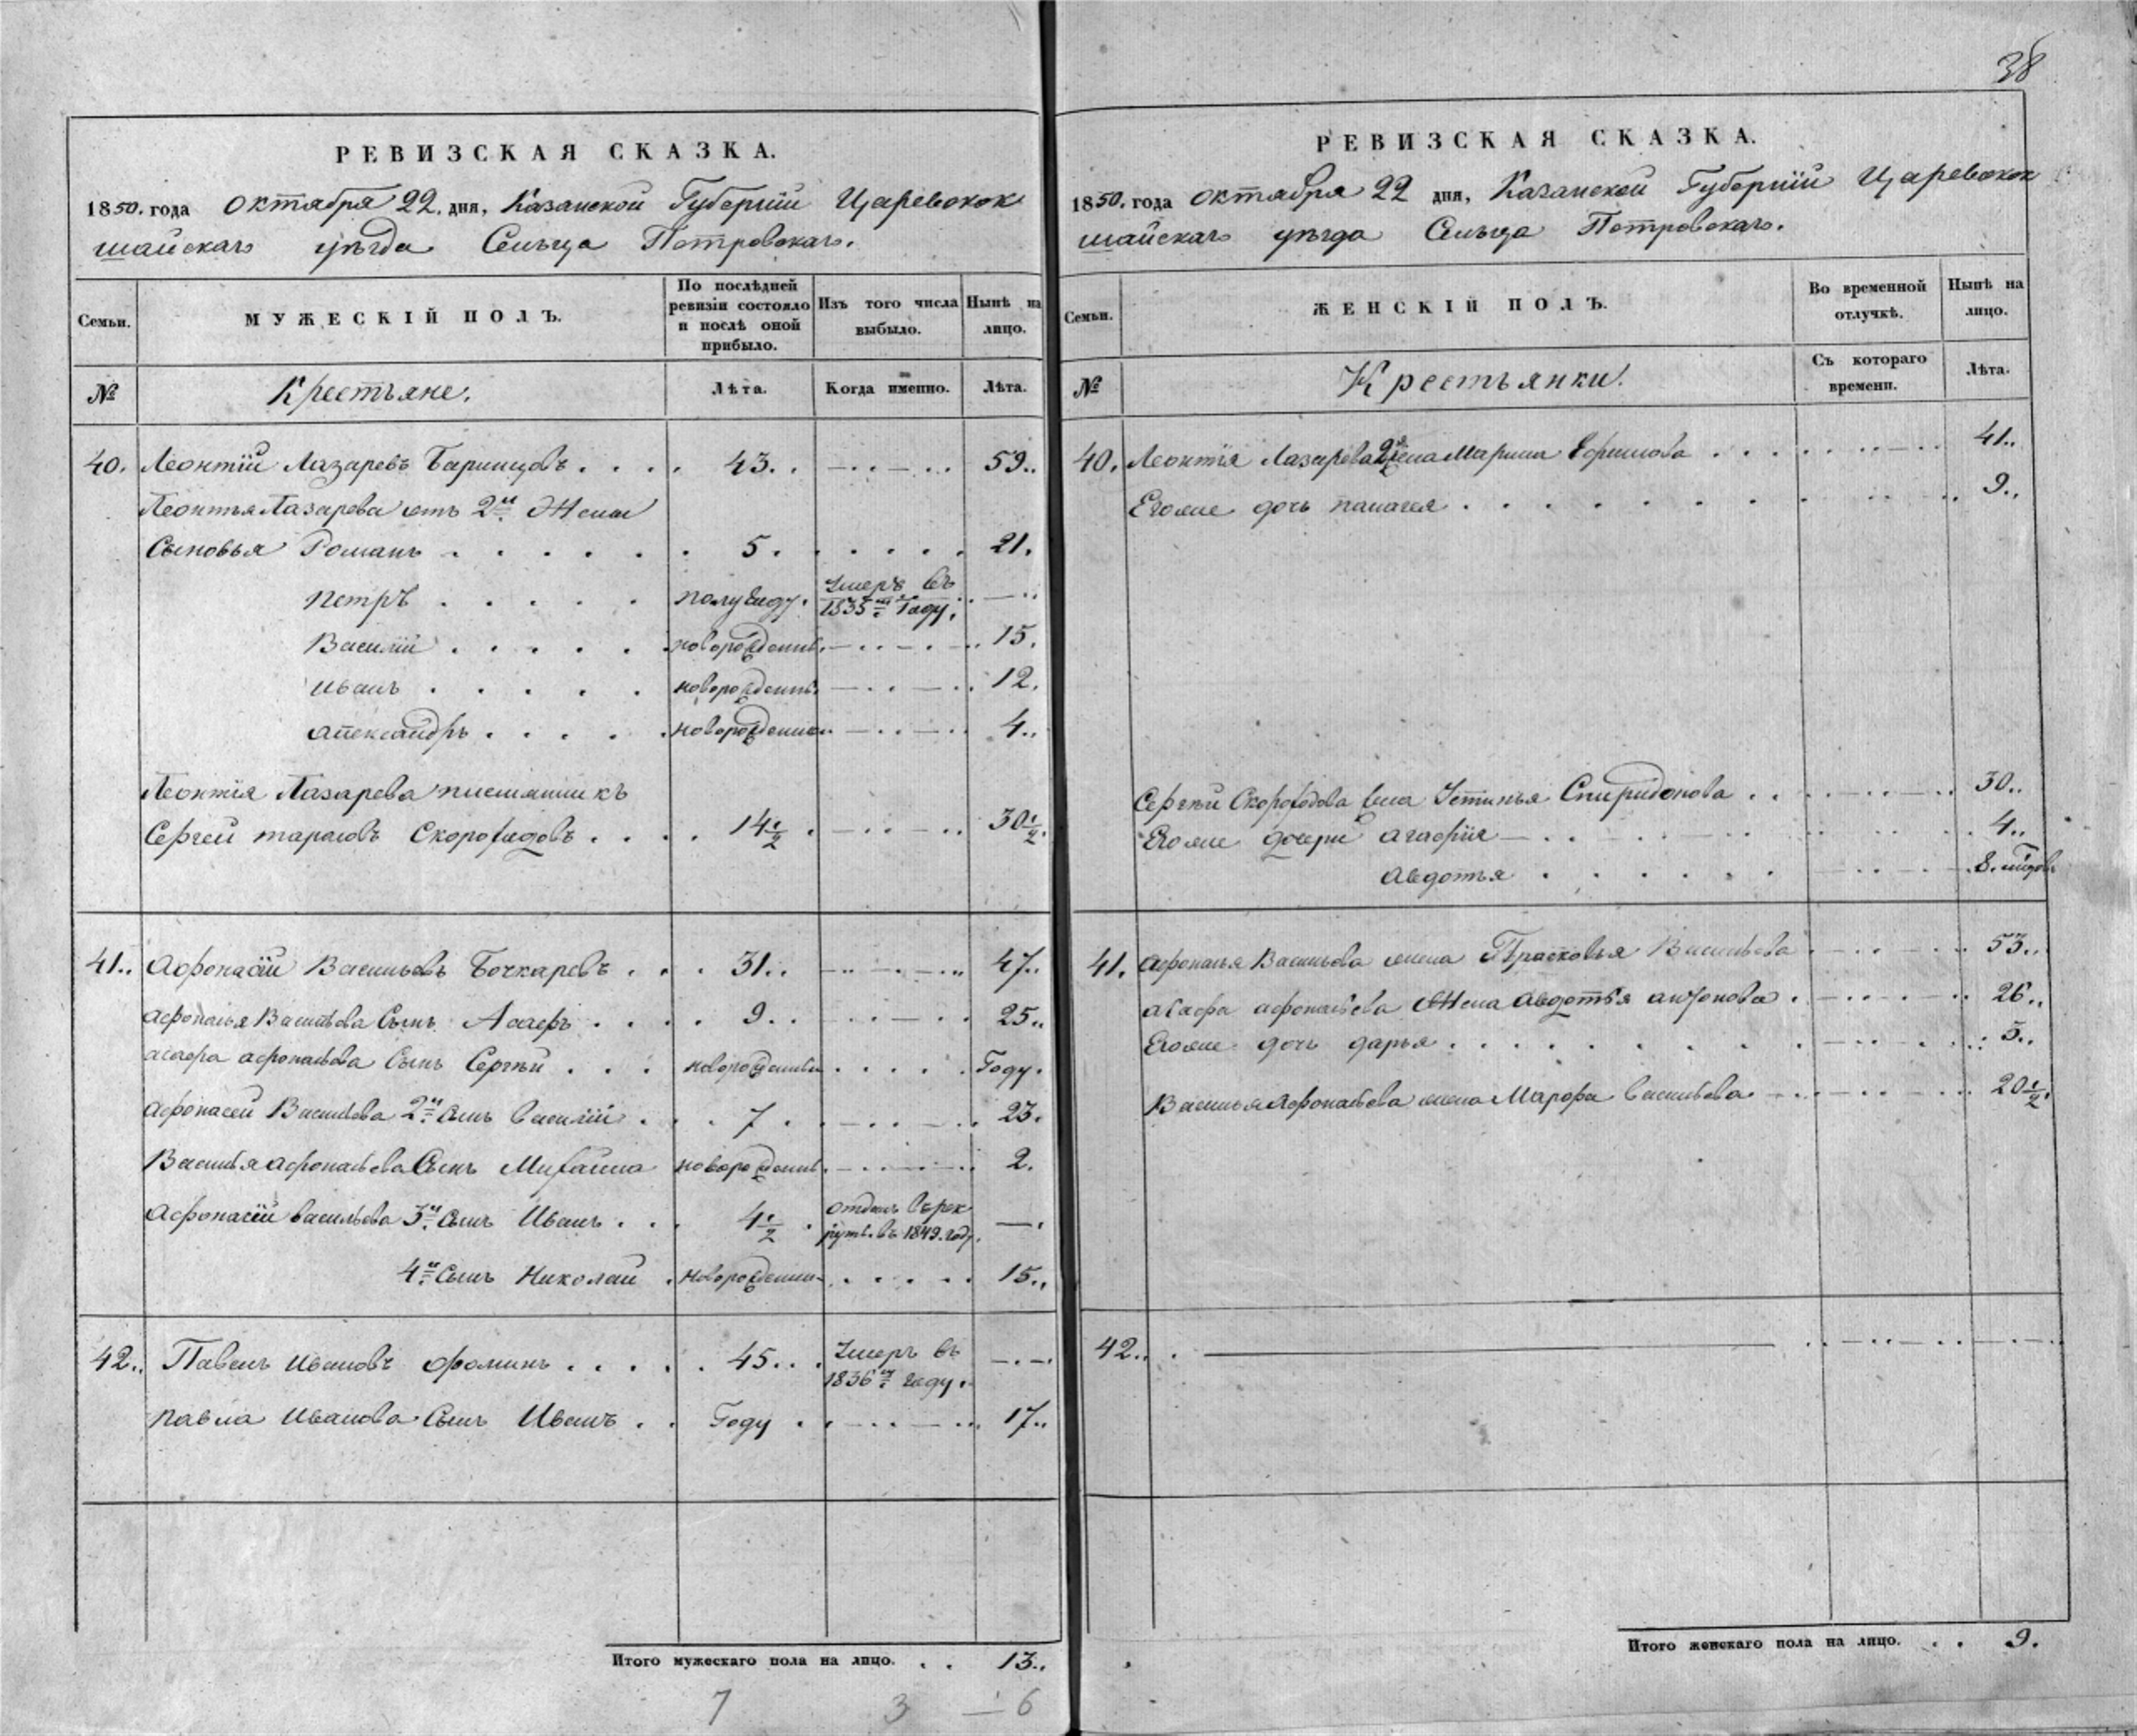 РЕВИЗСКАЯ СКАЗКА.
1850. года октября 22. дня, Казанской Губернiи Царевокок
шайскаго уѣзда Сельца Петровскаго.
Семьи.
МУЖЕСКІЙ ПОЛЪ.
По послѣдней
ревизіи состояло
и послѣ оной
прибыло.
Изъ того числа
выбыло.
Нынѣ на
лицо.
№
Крестьяне.
Лѣта.
Когда именно.
Лѣта.
40. Леонтiй Лазаревъ . . . . 43. . 59..
Леонтья Лазарева отъ 2й Жены
Сыновья Романъ . . . . . . 5. . . . . . 21.
Петръ . . . . . полугоду. Умеръ въ
1835м Году.
Василiй . . . . . новорожденный. 15.
Иванъ . . . . . новорожденный. 12.
Александръ . . . . . новорожденный 4..
Леонтiя Лазарева племянникъ
Сергей Тарасовъ Скороходовъ . . . . 14 1/2 . 30 1/2.
41.. Афонасiй Васильевъ Бочкаревъ . . . 31.. 47..
Афонасья Васильева Сынъ Асафъ . . . . 9. . 25..
Асафа Афонасьева Сынъ Сергѣй . . . новорожденный . . . . . Году.
Афонасей Васильева 2й Сынъ Василiй . . . 7 . 23.
Василья Афонасьева Сынъ Михайла новорожденный. 2.
Афонасiй Васильева 3й Сынъ Иванъ . . . 4 1/2 . отданъ въ рек
руты въ 1849. году.
4й Сынъ Николай . новорожденный . . . . . 15..
42.. Павелъ Ивановъ Фоминъ . . . . . 45. . . Умеръ въ
1836м году.
Павла Иванова Сынъ Иванъ . . Году . 17..
Итого мужескаго пола на лицо. . . 13..
7 3 — 6
38
РЕВИЗСКАЯ СКАЗКА.
1850. года октября 22 дня, Казанской Губернiи Царевокок
шайскаго уѣзда Сельца Петровскаго.
Семьи.
ЖЕНСКІЙ ПОЛЪ.
Во временной
отлучкѣ.
Нынѣ на
лицо.
№
Крестьянки.
Съ котораго
времени.
Лѣта.
40. Леонтiя Лазарева 2я жена Марина Ефимова . . . 41..
Егоже дочь Палагея . . . . . . . . 9..
Сергѣй Скороходова жена Устинья Спиридонова . . 30..
Егоже дочери Агафiя 4..
Авдотья . . . . . . 8.
41. Афонасья Васильева жена Прасковья Васильева 53..
Асафа Афонасьева Жена Авдотья Антонова . 26..
Егоже дочь Дарья . . . . . . . . 5..
Василья Афонасьева жена Марфа Васильева 20 1/2.
42..
Итого женскаго пола на лицо. . . 9.